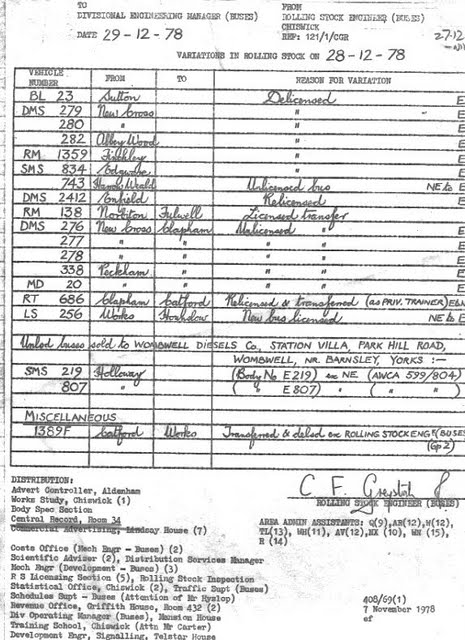 TO
DIVISIONAL ENGINEERING MANAGER (BUSES)
DATE 29-12-78
FROM
ROLLING STOCK ENGINEER (BUSES)
CHISWICK
REF: 121/1/CGR
27.12
VARIATIONS IN ROLLING STOCK ON 28-12-78
VEHICLE NUMBER FROM TO REASON FOR VARIATION
BL 23 Sutton Delicensed E
DMS 279 New Cross " E
280 " " E
282 Abbey Wood " E
RM 1359 Finchley " E
SMS 834 Edgware " E
743 Harrow Weald Unlicensed bus NE to E
DMS 2412 Enfield Relicensed E
RM 138 Norbiton Fulwell Licensed transfer E
DMS 276 New Cross Clapham Unlicensed " E
277 " " " " E
278 " " " " E
338 Peckham " " " E
MD 20 " " " " E
RT 686 Clapham Catford Relicensed & transferred (as PRIV. TRAINER)
LS 256 Works Hounslow New bus licensed NE to E
Unlcd buses sold to WOMBWELL DIESELS Co., STATION VILLA, PARK HILL ROAD,
WOMBWELL, NR. BARNSLEY, YORKS :-
SMS 219 Holloway (Body No E219) ex NE (AWCA 599/804)
807 " ( " E807) " ( " " )
MISCELLANEOUS
1389F Catford Works Transferred & delsd ex ROLLING STOCK ENGR (BUSES)
(Gp 2)
DISTRIBUTION:
Advert Controller, Aldenham
Works Study, Chiswick (1)
Body Spec Section
Central Record, Room 34
Commercial Advertising, Lindsay House (7)
Costs Office (Mech Engr - Buses) (2)
Scientific Adviser (2), Distribution Services Manager
Mech Engr (Development - Buses) (3)
R S Licensing Section (5), Rolling Stock Inspection
Statistical Office, Chiswick (2), Traffic Supt (Buses)
Schedules Supt - Buses (Attention of Mr Hyslop)
Revenue Office, Griffith House, Room 432 (2)
Div Operating Manager (Buses), Mansion House
Training School, Chiswick (Attn Mr Carter)
Development Engr, Signalling, Telstar House
C. F.
ROLLING STOCK ENGINEER (BUSES)
AREA ADMIN ASSISTANTS: Q(9), AR(12), H(12),
TL(13), WH(11), AV(12), HX (10), WN (15),
R (14)
408/69(1)
7 November 1978